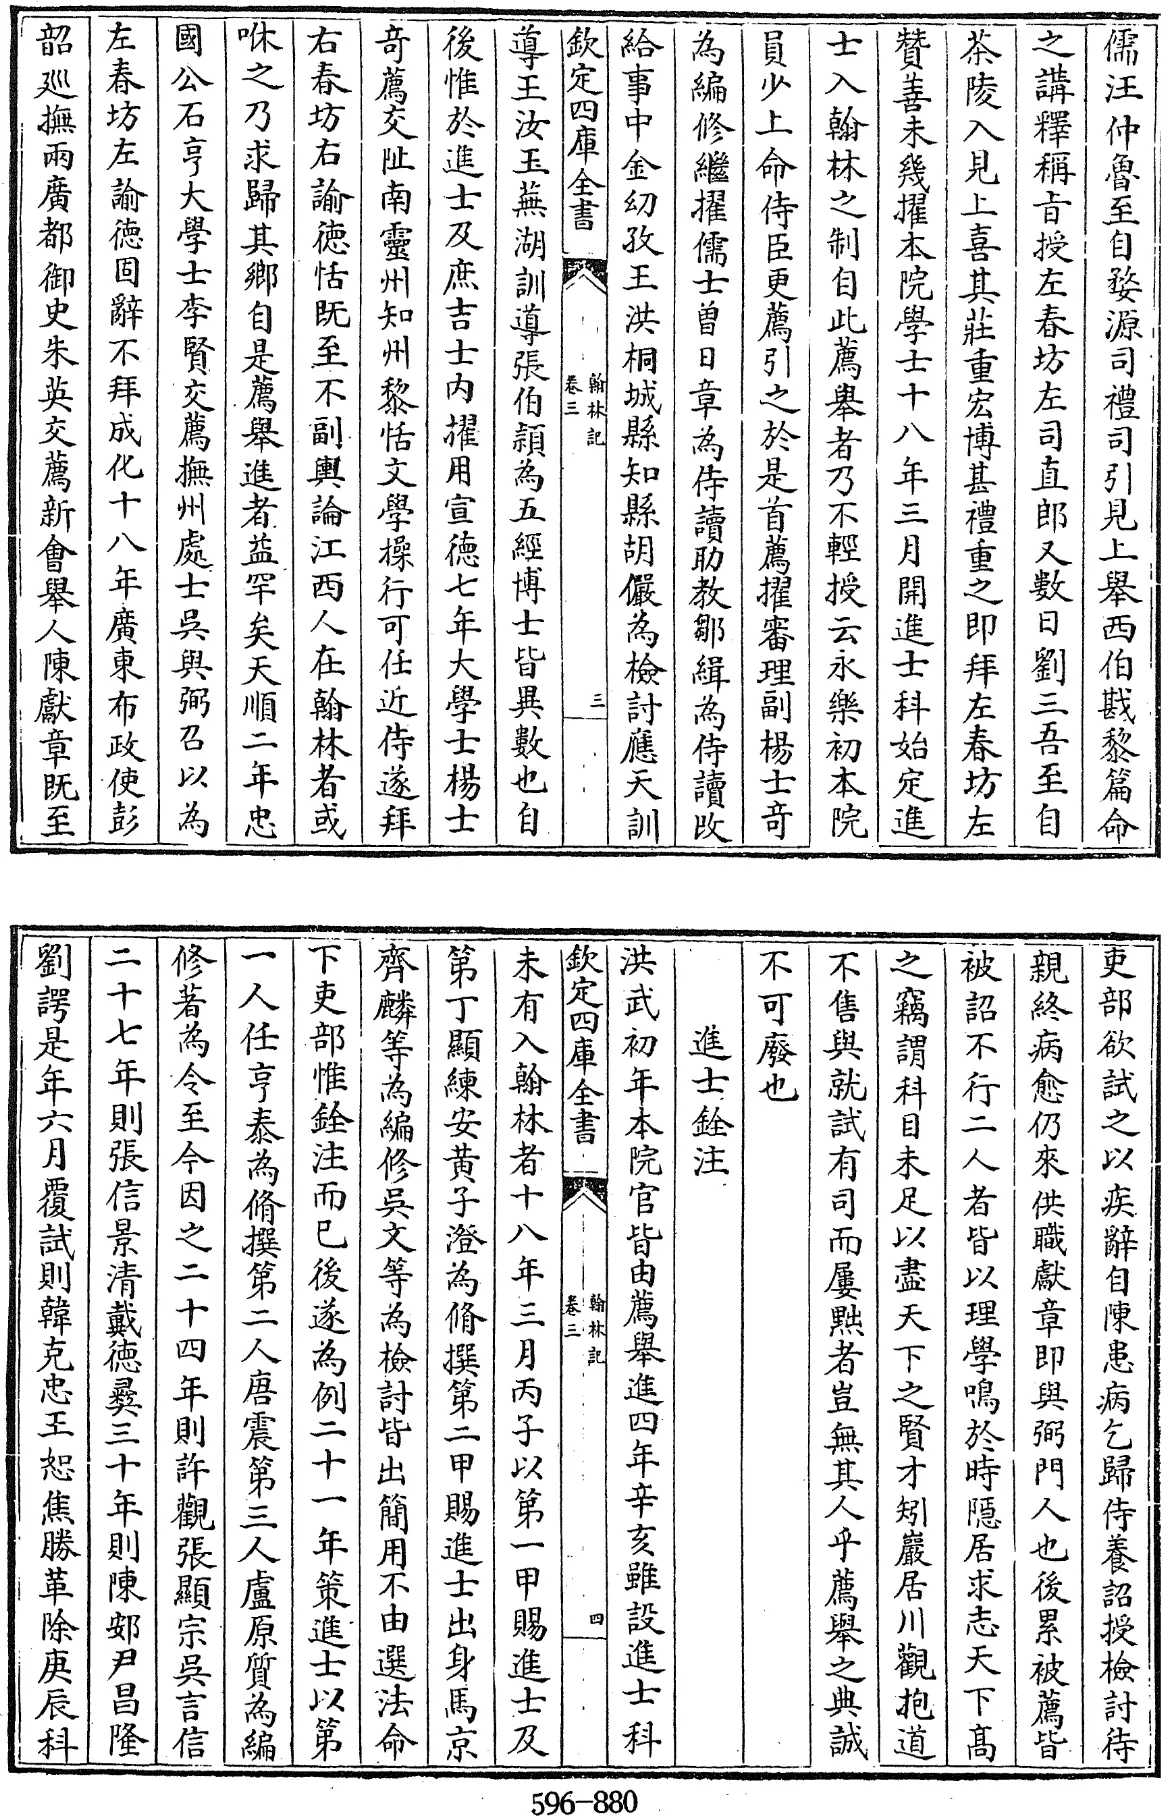 儒汪仲魯至自婺源司禮司引見上舉西伯戡黎篇命
之講釋稱旨授左春坊左司直郎又數日劉三吾至自
茶陵入見上喜其莊重宏博甚禮重之即拜左春坊左
贊善未幾擢本院學士十八年三月開進士科始定進
士入翰林之制自此薦舉者乃不輕授云永樂初本院
員少上命侍臣更薦引之於是首薦擢審理副楊士竒
為編修繼擢儒士曽日章為侍讀助教鄒緝為侍讀改
給事中金幼孜王洪桐城縣知縣胡儼為檢討應天訓
欽定四庫全書
翰林記
卷三
三
導王汝玉蕪湖訓導張伯頴為五經博士皆異數也自
後惟於進士及庶吉士内擢用宣德七年大學士楊士
竒薦交阯南靈州知州黎恬文學操行可任近侍遂拜
右春坊右諭徳恬既至不副輿論江西人在翰林者或
咻之乃求歸其鄉自是薦舉進者益罕矣天順二年忠
國公石亨大學士李賢交薦撫州處士吳與弼召以為
左春坊左諭徳固辭不拜成化十八年廣東布政使彭
韶廵撫兩廣都御史朱英交薦新會舉人陳獻章既至
吏部欲試之以疾辭自陳患病乞歸侍養詔授檢討待
親終病愈仍來供職獻章即與弼門人也後累被薦皆
被詔不行二人者皆以理學鳴於時隱居求志天下髙
之竊謂科目未足以盡天下之賢才矧巖居川觀抱道
不售與就試有司而屢黜者豈無其人乎薦舉之典誠
不可廢也
進士銓注
洪武初年本院官皆由薦舉進四年辛亥雖設進士科
欽定四庫全書
翰林記
卷三
四
未有入翰林者十八年三月丙子以第一甲賜進士及
第丁顯練安黄子澄為脩撰第二甲賜進士出身馬京
齊麟等為編修吳文等為檢討皆出簡用不由選法命
下吏部惟銓注而已後遂為例二十一年策進士以第
一人任亨泰為脩撰第二人唐震第三人盧原質為編
修著為令至今因之二十四年則許觀張顯宗吳言信
二十七年則張信景清戴徳彞三十年則陳䢿尹昌隆
劉諤是年六月覆試則韓克忠王恕焦勝革除庚辰科
596-880